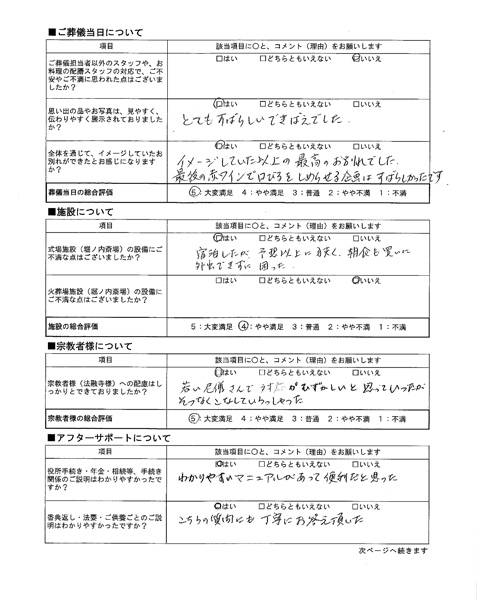 ■ご葬儀当日について
項目 該当項目に○と、コメント（理由）をお願いします
ご葬儀担当者以外のスタッフや、お
料理の配膳スタッフの対応で、ご不
安やご不満に思われた点はございま
したか？
□はい □どちらともいえない □いいえ
思い出の品やお写真は、見やすく、
伝わりやすく展示されておりました
か？
□はい □どちらともいえない □いいえ
とてもすばらしいできばえでした。
全体を通じて、イメージしていたお
別れができたとお感じになりますか
か？
□はい □どちらともいえない □いいえ
イメージしていた以上の最高のお別れでした。
最後の赤ワインで口びるをしめらせる企画はすばらしかったです
葬儀当日の総合評価 5：大変満足 4：やや満足 3：普通 2：やや不満 1：不満
■施設について
項目 該当項目に○と、コメント（理由）をお願いします
式場施設（堀ノ内斎場）の設備にご
不満な点はございましたか？
□はい □どちらともいえない □いいえ
宿泊したが、予想以上に 朝食を買いに
外出できずに困った。
火葬場施設（堀ノ内斎場）の設備に
ご不満な点はございましたか？
□はい □どちらともいえない □いいえ
施設の総合評価 5：大変満足 4：やや満足 3：普通 2：やや不満 1：不満
■宗教者様について
項目 該当項目に○と、コメント（理由）をお願いします
宗教者様（法融寺様）への配慮はし
っかりとできておりましたか？
□はい □どちらともいえない □いいえ
若い尼僧さんで対応がむずかしいと思っていったが
そつなくこなしていらっしゃった
宗教者様の総合評価 5：大変満足 4：やや満足 3：普通 2：やや不満 1：不満
■アフターサポートについて
項目 該当項目に○と、コメント（理由）をお願いします
役所手続き・年金・相続等、手続き
関係のご説明はわかりやすかったで
すか？
□はい □どちらともいえない □いいえ
わかりやすいマニュアルがあって便利だと思った
香典返し・法要・ご供養とのご説
明はわかりやすかったですか？
□はい □どちらともいえない □いいえ
こちらの質問にも丁寧にお答え頂した
次ページへ続きます